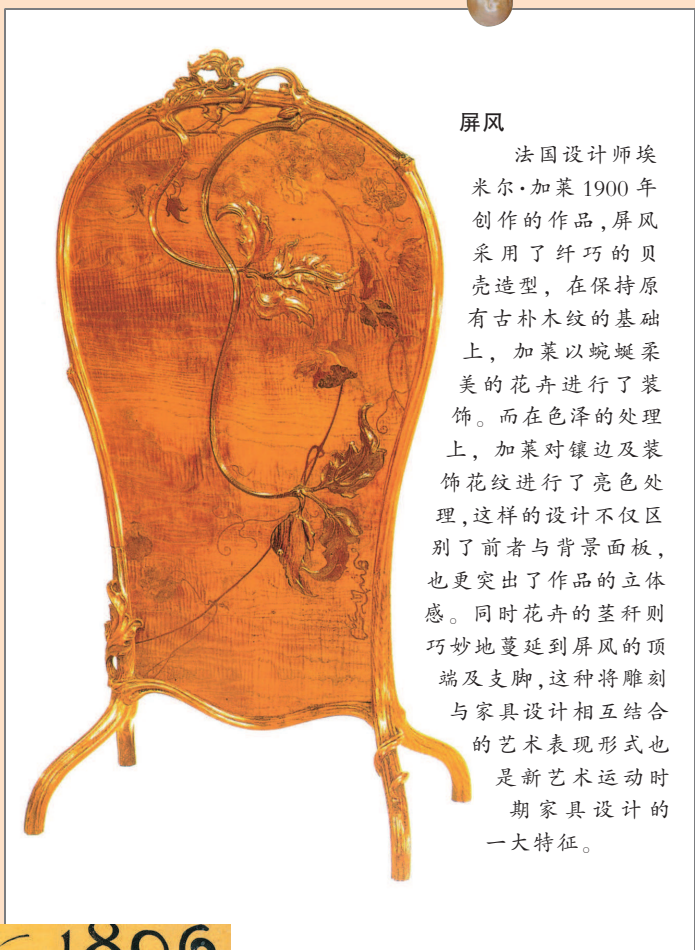 屏风
法国设计师埃
米尔·加莱 1900 年
创作的作品,屏风
采用了纤巧的贝
壳造型，在保持原
有古朴木纹的基础
上，加莱以蜿蜒柔
美的花卉进行了装
饰。而在色泽的处理
上，加莱对镶边及装
饰花纹进行了亮色处
理,这样的设计不仅区
别了前者与背景面板，
也更突出了作品的立体
感。同时花卉的茎秆则
巧妙地蔓延到屏风的顶
端及支脚,这种将雕刻
与家具设计相互结合
的艺术表现形式也
是新艺术运动时
期家具设计的
一大特征。
1896